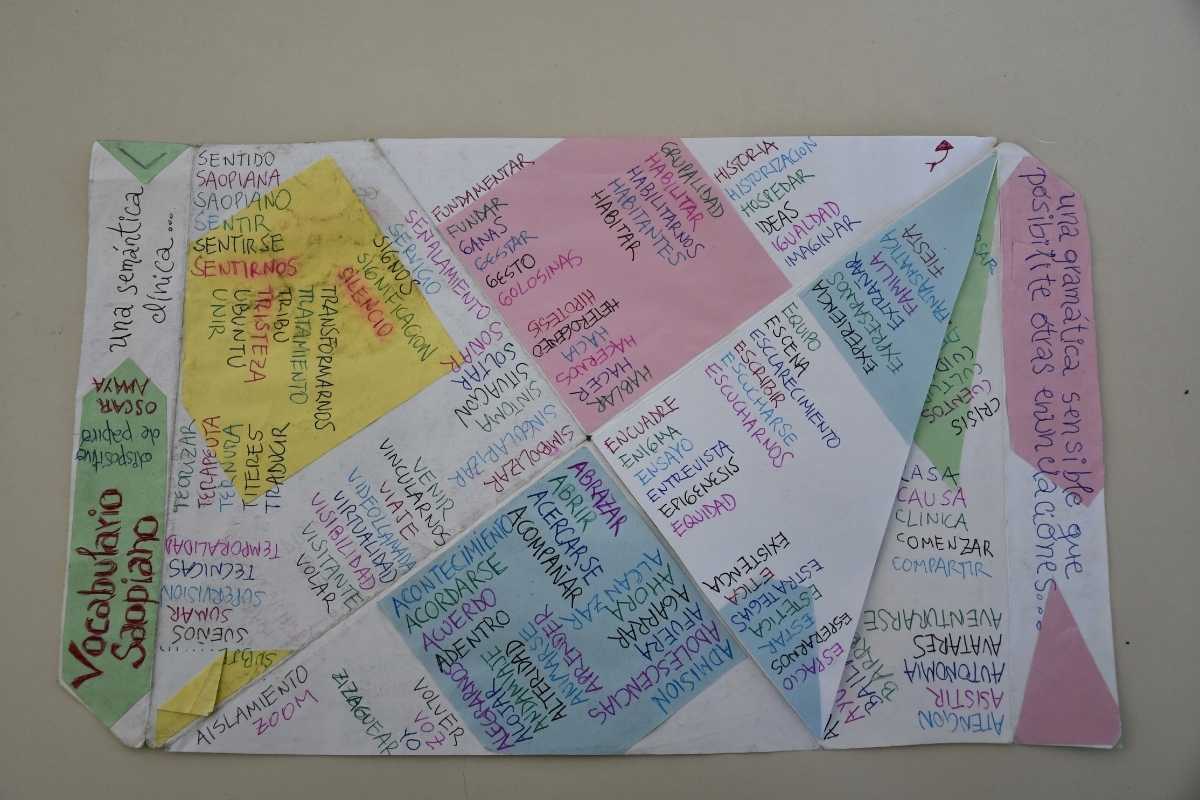 Vocabulario
Saopiano
dispositivo
de papiro
OSCAR
AMAYA
una semántica
clínica...
SENTIDO
SAOPIANA
SAOPIANO
SENTIR
SENTIRSE
SENTIRNOS
UNIR
UBUNTU
TRISTEZA
TRIBU
TRATAMIENTO
TRANSFORMARNOS
SILENCIO
SIGNIFICACION
SIGNOS
SERVICIO
SEÑALAMIENTO
SONAR
SOLTAR
SITUACION
SINTOMA
SINGULARIZAR
SIMBOLIZAR
TEORIZAR
TERAPEUTA
TERNURA
TITERES
TRADUCIR
TEMPORALIDAD
TECNICAS
SUPERVISION
SUMAR
SUEÑOS
VENIR
VINCULARNOS
VIAJE
VIDEOLLAMADA
VIRTUALIDAD
VISIBILIDAD
VISITANTE
VOLAR
AISLAMIENTO
ZOOM
ZIZAGUEAR
VOLVER
VOZ
YO
FUNDAMENTAR
FUNDAR
GANAS
GESTAR
GESTO
GOLOSINAS
GRUPALIDAD
HABILITAR
HABILITARNOS
HABITANTES
HABITAR
HIPOTESIS
HETEROGENEO
HACIA
HACERNOS
HACER
HABLAR
HISTORIA
HISTORIZACION
HOSPEDAR
IDEAS
IGUALDAD
IMAGINAR
FIESTA
FAMILIA
EXTRAÑAR
EXPRESARNOS
EXPERIENCIA
EQUIPO
ESCENA
ESCLARECIMIENTO
ESCRIBIR
ESCUCHARSE
ESCUCHARNOS
ENCUADRE
ENIGMA
ENSAYO
ENTREVISTA
EPIGENESIS
EQUIDAD
EXISTENCIA
ETICA
ESTRATEGIAS
ESTETICA
ESTAR
ESPERARNOS
ESPACIO
ABRAZAR
ABRIR
ACERCARSE
ACOMPAÑAR
ACONTECIMIENTO
ACORDARSE
ACUERDO
ADENTRO
ADMISION
ADOLESCENCIAS
AFUERA
AGARRAR
AHORA
ALCANZAR
ALEGRARNOS
ALOJAR
ALTERIDAD
ANIMARSE
APRENDER
CRISIS
CAUSA
CLINICA
COMENZAR
COMPARTIR
AVENTURARSE
AVATARES
AUTONOMIA
ASISTIR
ATENCION
una gramática sensible que
posibilite otras enunciaciones...